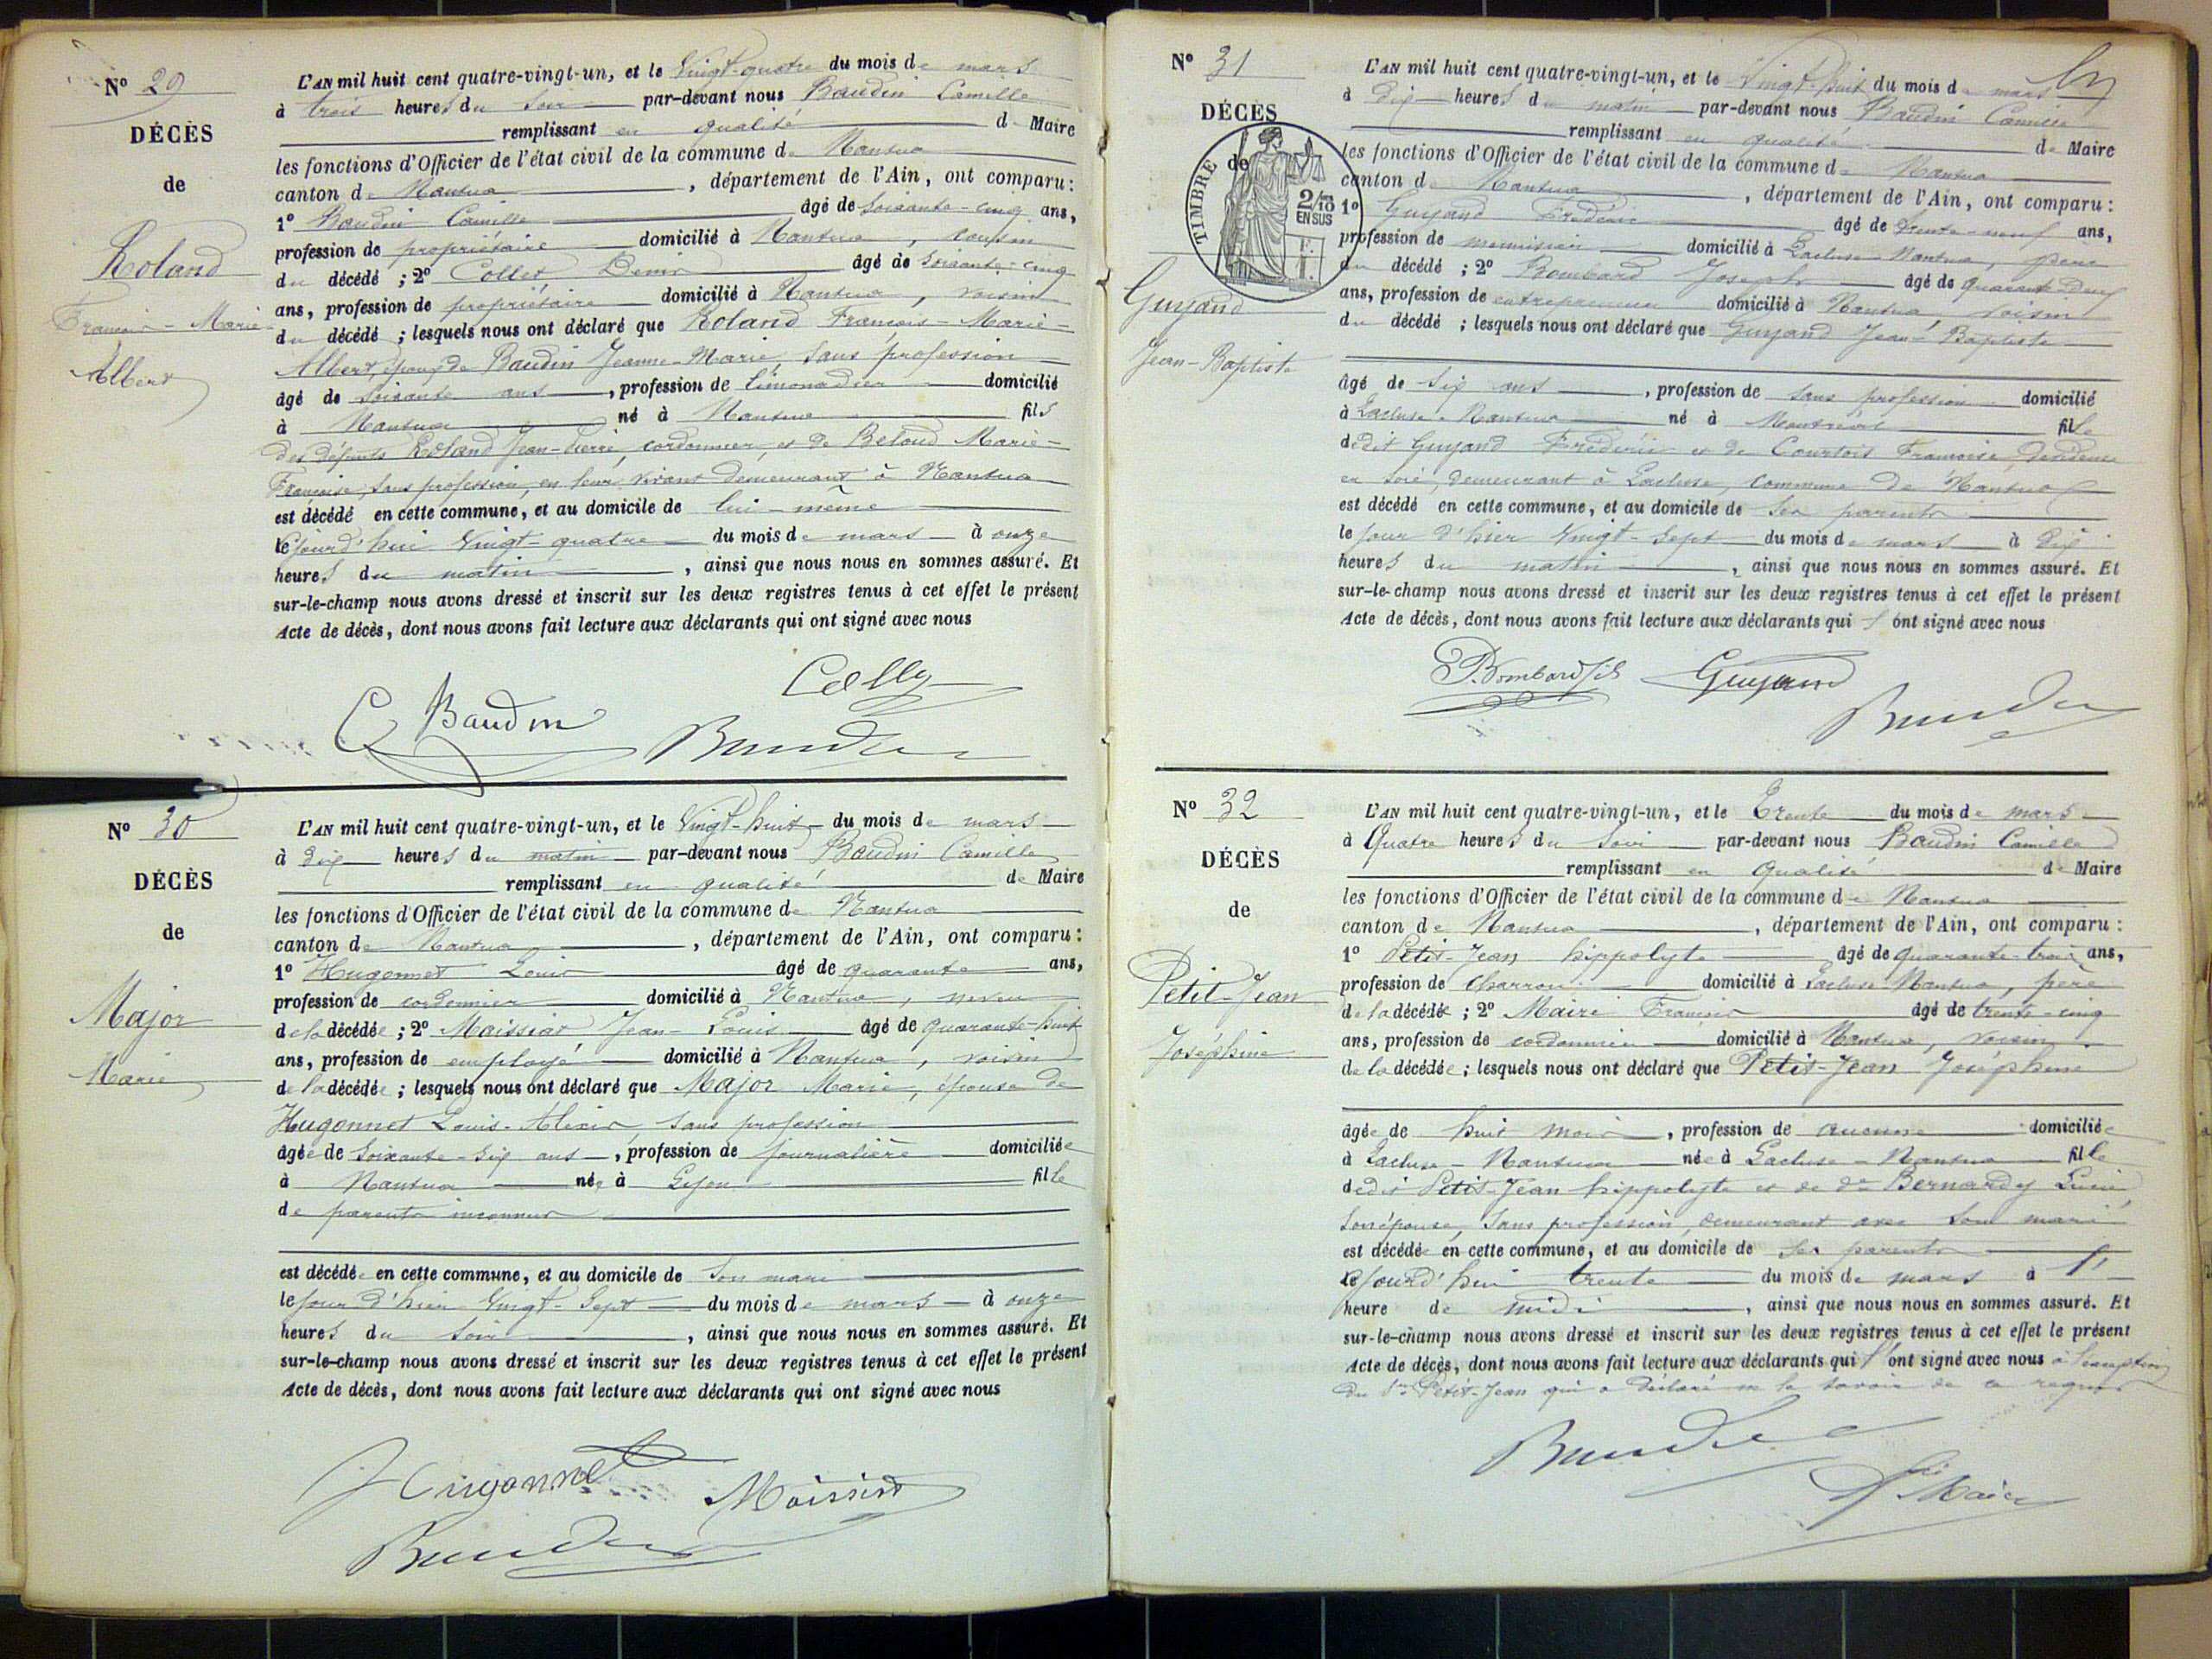 N° 29
DÉCÈS
de
Roland
François-Marie-
Albert
L'AN mil huit cent quatre-vingt-un, et le Vingt-quatre du mois de mars
à trois heures du soir par-devant nous Baudin Camille
remplissant en qualité de Maire
les fonctions d'Officier de l'état civil de la commune de Nantua
canton de Nantua, département de l'Ain, ont comparu :
1° Baudin Camille âgé de soixante-cinq ans,
profession de propriétaire domicilié à Nantua, cousin
du décédé ; 2° Collet Denis âgé de soixante-cinq
ans, profession de propriétaire domicilié à Nantua, voisin
du décédé ; lesquels nous ont déclaré que Roland François-Marie-
Albert, époux de Baudin Jeanne-Marie, sans profession
âgé de soixante ans, profession de limonadier domicilié
à Nantua né à Nantua fils
des défunts Roland Jean-Pierre, cordonnier, et de Beloud Marie-
Françoise, sans profession, en leur vivant demeurant à Nantua
est décédé en cette commune, et au domicile de lui-même
cejourd'hui Vingt-quatre du mois de mars à onze
heures du matin, ainsi que nous nous en sommes assuré. Et
sur-le-champ nous avons dressé et inscrit sur les deux registres tenus à cet effet le présent
Acte de décès, dont nous avons fait lecture aux déclarants qui ont signé avec nous
C Baudin
N° 30
DÉCÈS
de
Major
Marie
L'AN mil huit cent quatre-vingt-un, et le Vingt-huit du mois de mars
à dix heures du matin par-devant nous Baudin Camille
remplissant en qualité de Maire
les fonctions d'Officier de l'état civil de la commune de Nantua
canton de Nantua, département de l'Ain, ont comparu :
1° Hugonnet Louis âgé de quarante ans,
profession de cordonnier domicilié à Nantua, neveu
de la décédée ; 2° Moissiat Jean-Louis âgé de quarante-huit
ans, profession de employé domicilié à Nantua, voisin
de la décédée ; lesquels nous ont déclaré que Major Marie, épouse de
Hugonnet Louis-Alexis, sans profession
âgée de soixante-six ans, profession de journalière domiciliée
à Nantua née à Lyon fille
de parents inconnus
est décédée en cette commune, et au domicile de son mari
le jour d'hier Vingt-sept du mois de mars à onze
heures du soir, ainsi que nous nous en sommes assuré. Et
sur-le-champ nous avons dressé et inscrit sur les deux registres tenus à cet effet le présent
Acte de décès, dont nous avons fait lecture aux déclarants qui ont signé avec nous
Hugonnet Moissiat
N° 31
DÉCÈS
de
TIMBRE
2/10
EN SUS
Guyand
Jean-Baptiste
L'AN mil huit cent quatre-vingt-un, et le Vingt-huit du mois de mars
à dix heures du matin par-devant nous Baudin Camille
remplissant en qualité de Maire
les fonctions d'Officier de l'état civil de la commune de Nantua
canton de Nantua, département de l'Ain, ont comparu :
1° Guyand Frédéric âgé de trente-neuf ans,
profession de menuisier domicilié à Lacluse-Nantua, père
du décédé ; 2° Bombard Joseph âgé de quarante-deux
ans, profession de entrepreneur domicilié à Nantua, voisin
du décédé ; lesquels nous ont déclaré que Guyand Jean-Baptiste
âgé de six ans, profession de sans profession domicilié
à Lacluse-Nantua né à Montréal fils
dudit Guyand Frédéric et de Courtois Françoise, dévideuse
en soie, demeurant à Lacluse, commune de Nantua
est décédé en cette commune, et au domicile de ses parents
le jour d'hier Vingt-sept du mois de mars à dix
heures du matin, ainsi que nous nous en sommes assuré. Et
sur-le-champ nous avons dressé et inscrit sur les deux registres tenus à cet effet le présent
Acte de décès, dont nous avons fait lecture aux déclarants qui ont signé avec nous
Bombard fils Guyand
N° 32
DÉCÈS
de
Petit-Jean
Joséphine
L'AN mil huit cent quatre-vingt-un, et le Trente du mois de mars
à Quatre heures du soir par-devant nous Baudin Camille
remplissant en qualité de Maire
les fonctions d'Officier de l'état civil de la commune de Nantua
canton de Nantua, département de l'Ain, ont comparu :
1° Petit-Jean hippolyte âgé de quarante-trois ans,
profession de Charron domicilié à Lacluse-Nantua, père
de la décédée ; 2° Maire François âgé de trente-cinq
ans, profession de cordonnier domicilié à Nantua, voisin
de la décédée ; lesquels nous ont déclaré que Petit-Jean Joséphine
âgée de huit mois, profession de aucune domiciliée
à Lacluse-Nantua née à Lacluse-Nantua fille
dudit Petit-Jean hippolyte et de de Bernardy
son épouse, sans profession, demeurant avec son mari
est décédée en cette commune, et au domicile de ses parents
cejourd'hui trente du mois de mars à
heure de midi, ainsi que nous nous en sommes assuré. Et
sur-le-champ nous avons dressé et inscrit sur les deux registres tenus à cet effet le présent
Acte de décès, dont nous avons fait lecture aux déclarants qui l'ont signé avec nous à l'exception
du Sr Petit-Jean qui a déclaré ne le savoir de ce requis
Maire